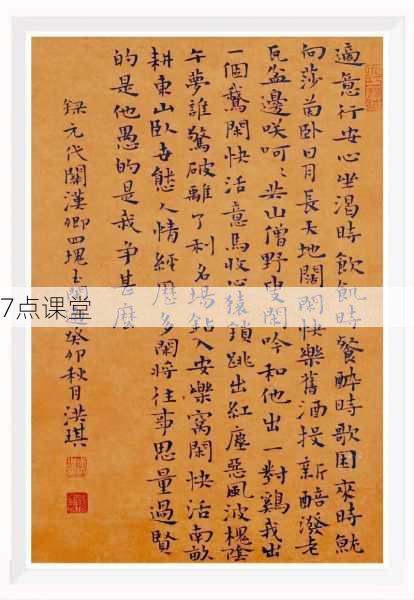 適意行安心坐渴時飲飢時餐醉時歌困來時就
向莎茵卧日月長天地闊閑快樂舊酒投新醅潑老
瓦盆邊咲呵〻共山僧野叟閑吟和他出一對鷄我出
一個鵝閑快活意馬收心猿鎖跳出紅塵惡風波槐陰
午夢誰驚破離了利名場鉆入安樂窩閑快活南畝
耕東山臥世態人情經歷多閑將往事思量過賢
的是他愚的是我爭甚麼
錄元代關漢卿四塊玉閑適癸卯秋月洪琪
7点课堂